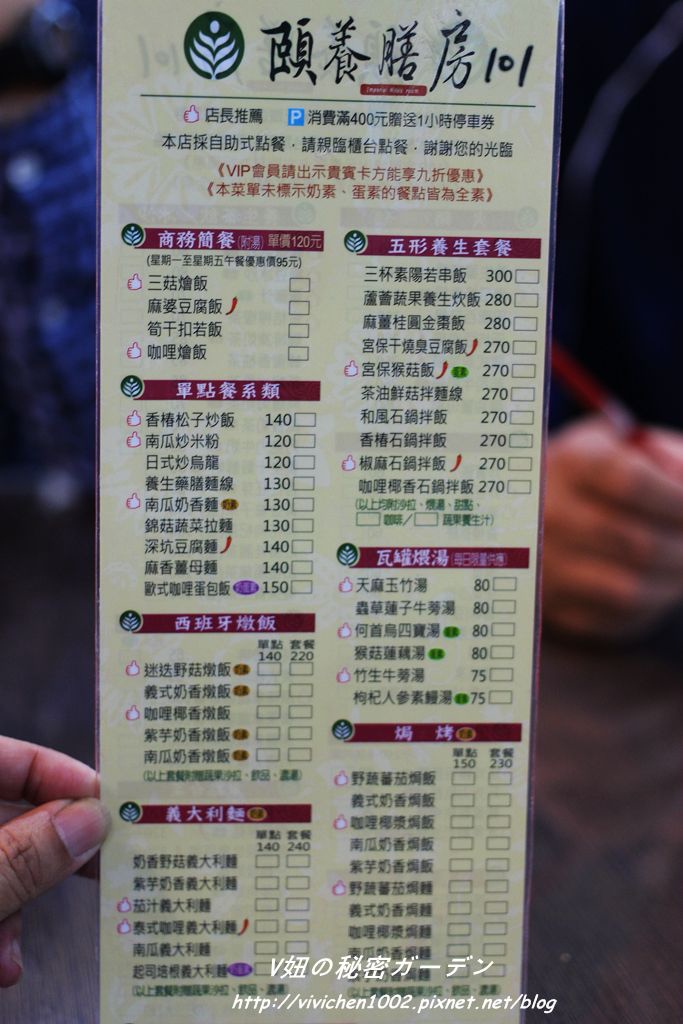 頤養膳房101
Imperial Rises room
店長推薦 P 消費滿400元贈送1小時停車券
本店採自助式點餐，請親臨櫃台點餐，謝謝您的光臨
《VIP會員請出示貴賓卡方能享九折優惠》
《本菜單未標示奶素、蛋素的餐點皆為全素》
商務簡餐(附湯) 單價120元
(星期一至星期五午餐優惠價95元)
三菇燴飯
麻婆豆腐飯
筍干扣若飯
咖哩燴飯
單點餐系類
香椿松子炒飯 140
南瓜炒米粉 120
日式炒烏龍 120
養生藥膳麵線 130
南瓜奶香麵 奶素 130
錦菇蔬菜拉麵 130
深坑豆腐麵 140
麻香薑母麵 140
歐式咖哩蛋包飯 奶蛋素 150
西班牙燉飯
單點 套餐
140 220
迷迭野菇燉飯 奶素
義式奶香燉飯 奶素
咖哩椰香燉飯
紫芋奶香燉飯 奶素
南瓜奶香燉飯 奶素
(以上套餐附贈蔬果沙拉、飲品、濃湯)
義大利麵 奶素
單點 套餐
140 240
奶香野菇義大利麵
紫芋奶香義大利麵
茄汁義大利麵
泰式咖哩義大利麵
南瓜義大利麵
起司培根義大利麵 奶蛋素
(以上套餐附贈蔬果沙拉、飲品、濃湯)
五形養生套餐
三杯素陽若串飯 300
蘆薈蔬果養生炊飯 280
麻薑桂圓金棗飯 280
宮保干燒臭豆腐飯 270
宮保猴菇飯 蛋素 270
茶油鮮菇拌麵線 270
和風石鍋拌飯 270
香椿石鍋拌飯 270
椒麻石鍋拌飯 270
咖哩椰香石鍋拌飯 270
(以上均附沙拉、煨湯、甜點、
咖啡／ 蔬果養生汁)
瓦罐煨湯(每日限量供應)
天麻玉竹湯 80
蟲草蓮子牛蒡湯 80
何首烏四寶湯 蛋素 80
猴菇蓮藕湯 蛋素 80
竹生牛蒡湯 75
枸杞人參素鰻湯 蛋素 75
焗 烤 奶素
單點 套餐
150 230
野蔬蕃茄焗飯
義式奶香焗飯
咖哩椰漿焗飯
南瓜奶香焗飯
紫芋奶香焗飯
野蔬蕃茄焗麵
義式奶香焗麵
咖哩椰漿焗麵
南瓜奶香焗麵
V妞の秘密ガーデン
http://vivichen1002.pixnet.net/blog